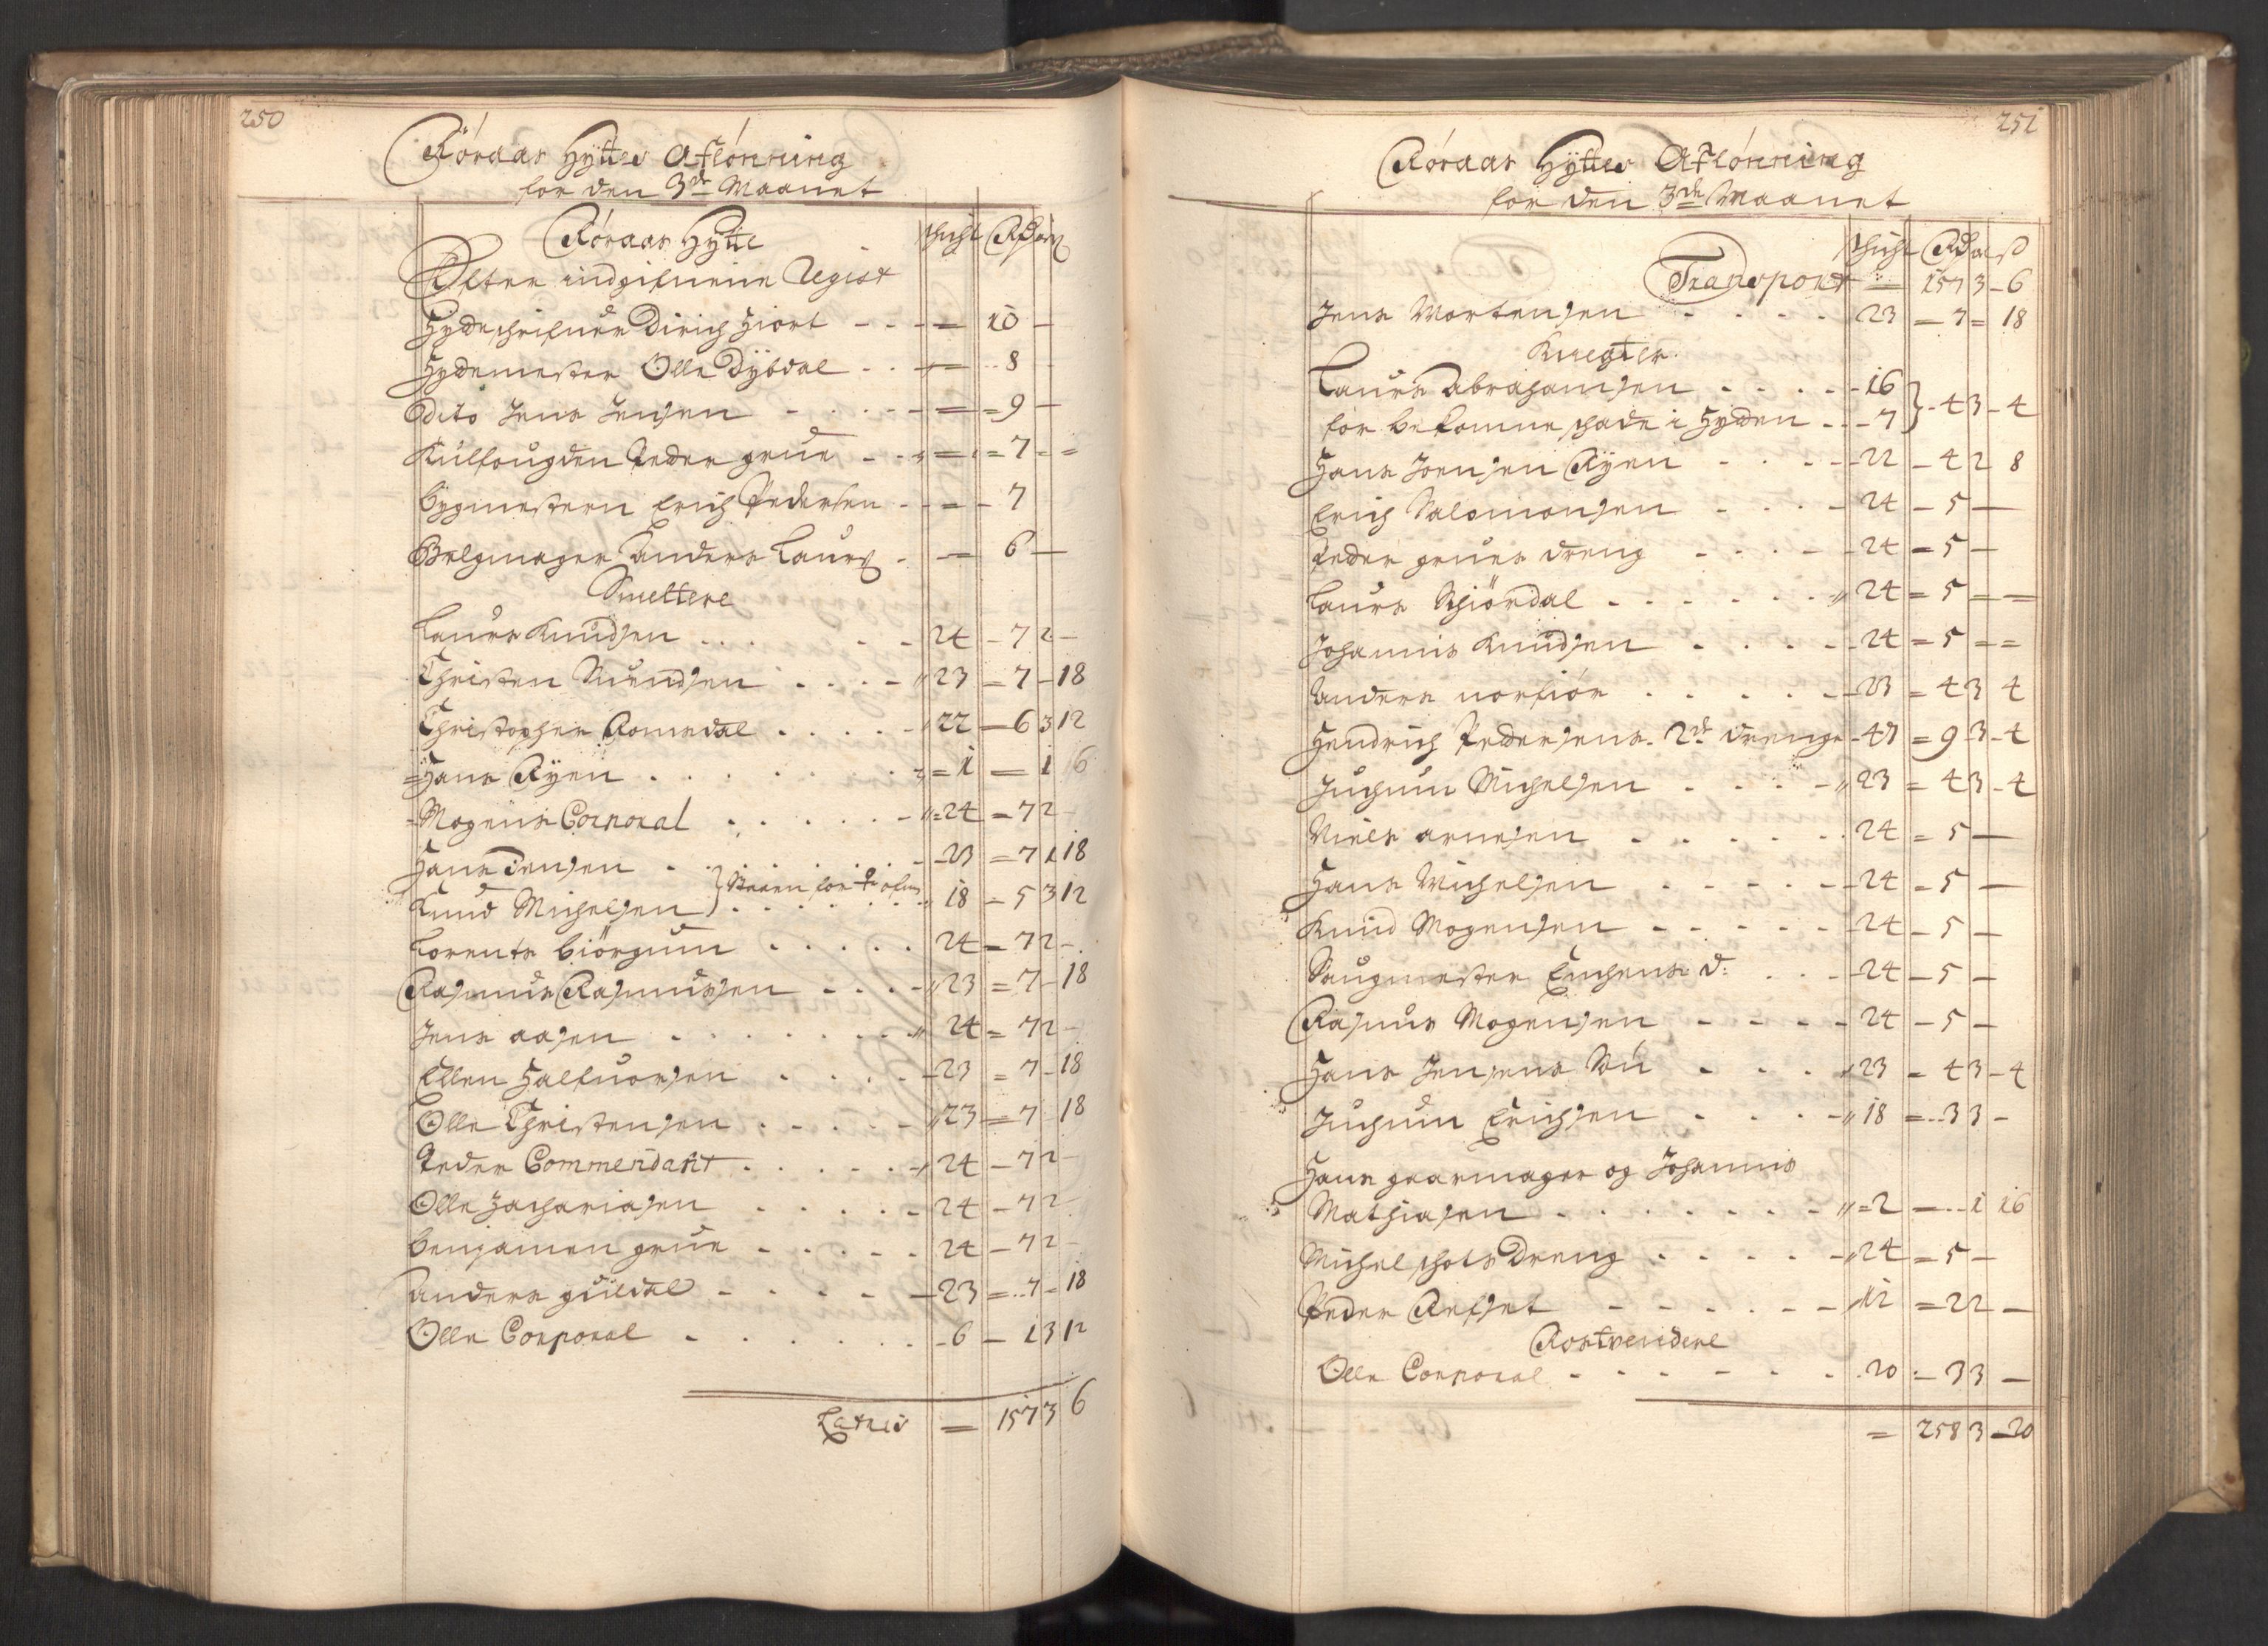 250
Röraas Hyttes Aflönning
for den 3de Maanet
Röraas Hytte Schicht Rd ort ß
Efter indgifuene Regist
Hydeschrifuer Dirich Hiort - - = 10 -
Hydemester Olle Dybdal - - = 8
Dito Jens Jensen - - = 9 -
Kulfougden Peder grue - - = 7 - =
Bygmestern Erich Pedersen - - = 7
Belgmager Anders Laurs - = 6 -
Smeltere
Laurs Knudsen - - 24 - 7 2 -
Christen Suendsen - - 23 - 7 - 18
Christopher Romedal - - 22 - 6 3 12
Hans Ryen - - 1 - 1 6
Mogens Corporal - - 24 = 7 2 -
Hans Jensen - - 23 = 7 1 18
Knud Michelsen - - 18 - 5 3 12
Lorents Biörgum - - 24 = 7 2 -
Rasmus Rasmussen - - 23 = 7 - 18
Jens aasen - - 24 = 7 2 -
Ellen Halfuorsen - - 23 = 7 - 18
Olle Christensen - - 23 = 7 18
Peder Commendant - - 24 - 7 2 -
Olle Zachariasen - - 24 - 7 2 -
Benjamen grue - - 24 - 7 2 -
Anders guldal - - 23 = 7 - 18
Olle Corporal - - 6 - 1 3 12
Lateris = 157 3 6
251
Röraas Hyttes Aflönning
for den 3de Maanet
Schicht Rd ort ß
Transport = 157 3 - 6
Jens Mortensen - - 23 = 7 = 18
Knegter
Laurs Abrahamsen - - 16
for bekomne schade i Hyden - - 7 } - 4 3 - 4
Hans Joensen Ryen - - 22 - 4 2 8
Erich Salomonsen - - 24 - 5 -
Peder grues dreng - - 24 = 5 -
Laurs Schiördal - - 24 = 5 = =
Johannis Knudsen - - 24 = 5 = =
Anders norfiör - - 23 = 4 3 4
Hendrich Pedersens 2de drenge - 47 = 9 3 - 4
Juchum Michelsen - - 23 = 4 3 - 4
Niels arnesen - - 24 = 5 -
Hans Michelsen - - 24 = 5 -
Knud Mogensen - - 24 - 5 -
Saugmester d: - - 24 - 5 -
Rasmus Mogensen - - 24 - 5 -
Hans Jensens Sön - - 23 = 4 3 - 4
Juchum Erichsen - - 18 = 3 3 -
Hans gaarmager og Johannis
Mathiasen - - 2 - 1 16
Michel schots Dreng - - 24 = 5 -
Peder Refset - - 12 = 2 2 -
Rostvendere
Olle Corporal - - 20 - 3 3 -
= 258 3 - 20